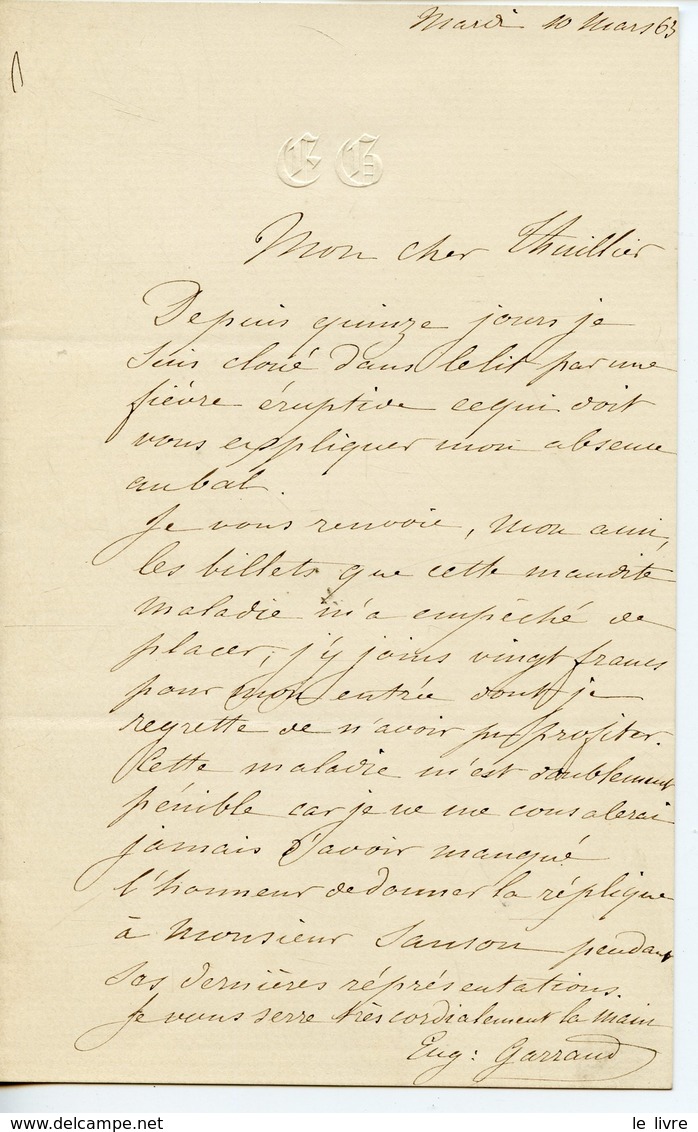 Mardi 10 Mars 63
E G
Mon cher Thuillier
Depuis quinze jours je
suis cloué dans le lit par une
fièvre éruptive ce qui doit
vous expliquer mon absence
au bal.
Je vous renvoie, mon ami,
les billets que cette maudite
maladie m'a empêché de
placer; j'y joins vingt francs
pour mon entrée dont je
regrette de n'avoir pu profiter.
Cette maladie m'est doublement
pénible car je ne me consolerai
jamais d'avoir manqué
l'honneur de donner la réplique
à Monsieur Samson pendant
ses dernières réprésentations.
Je vous serre très cordialement la main
Eug: Garraud
le livre